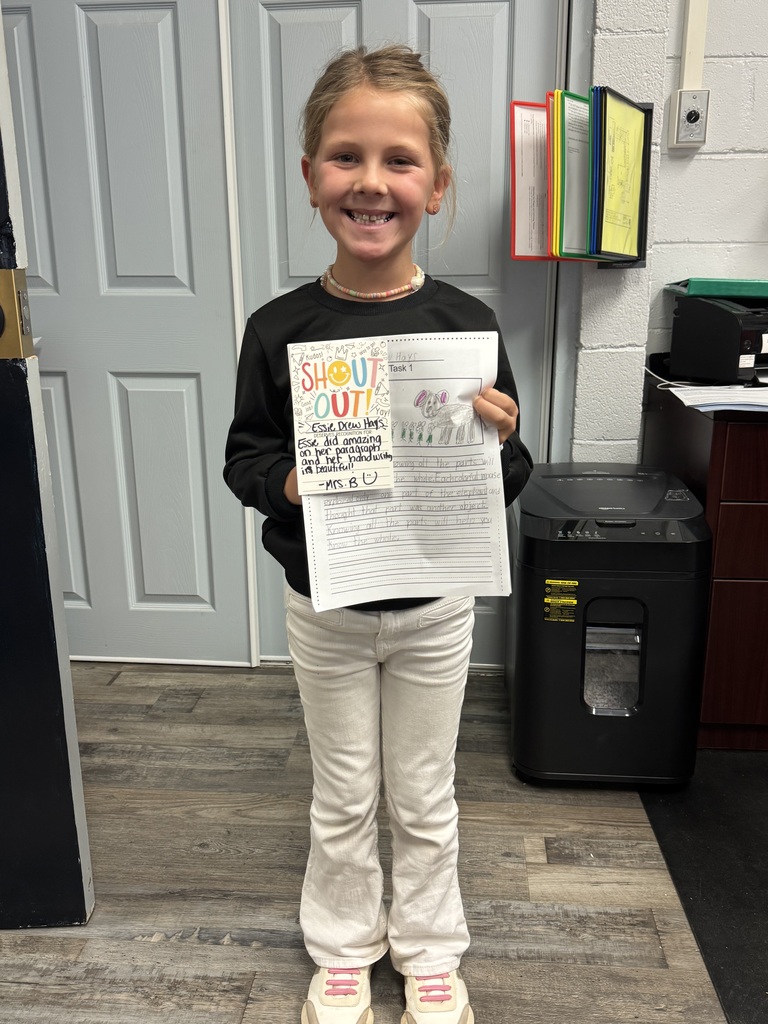 Kudos!
SHOUT
OUT!
Yay!
Essie Drew Hays
DESERVES RECOGNITION FOR
Essie did amazing
on her paragraph
and her handwriting
is beautiful!
-Mrs. B
Hays
Task 1
nowing all the parts will
the whole. Each colorful mouse
part of the elephant and
thought that part was another object.
Knowing all the parts will help you
know the whole.